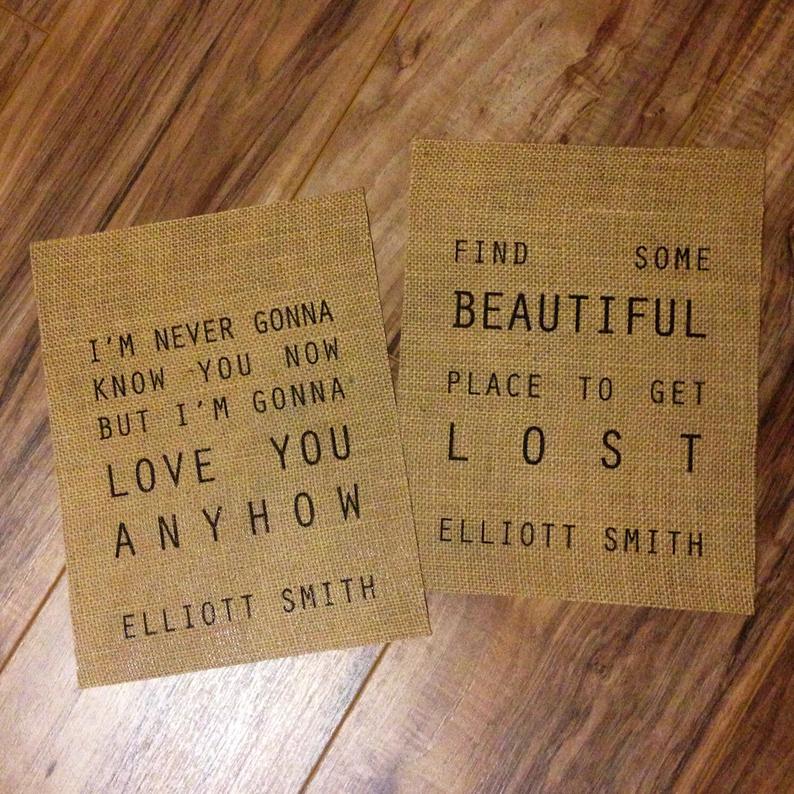 I'M NEVER GONNA
KNOW YOU NOW
BUT I'M GONNA
LOVE YOU
ANYHOW
ELLIOTT SMITH
FIND SOME
BEAUTIFUL
PLACE TO GET
LOST
ELLIOTT SMITH